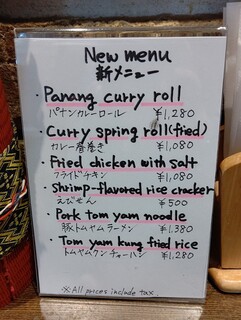 New menu
新メニュー
・Panang curry roll
パナンカレーロール ¥1,280
・Curry spring roll(fried)
カレー春巻き ¥1,080
・Fried chicken with salt
フライドチキン ¥1,080
・Shrimp-flavored rice cracker
えびせん ¥500
・Pork tom yam noodle
豚トムヤムラーメン ¥1,380
・Tom yam kung fried rice
トムヤムクンチャーハン ¥1,280
※All prices include tax.